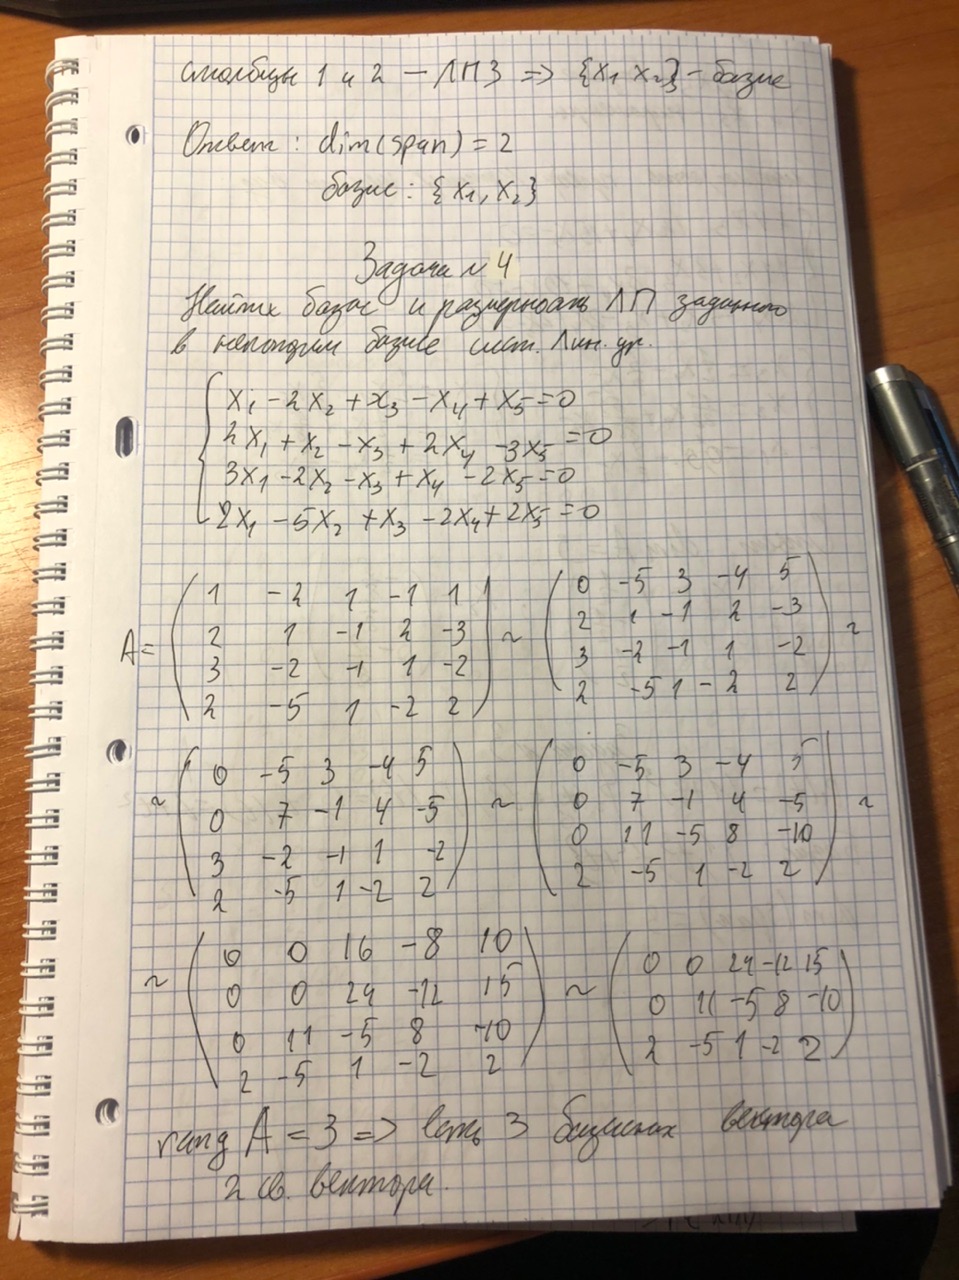 столбцы 1 и 2 – ЛНЗ => {x₁ x₂} – базис
Ответ: dim(span) = 2
базис: {x₁, x₂}
Задача № 4
Найти базис и размерность ЛП заданного
в некотором базисе сист. лин. ур.
x₁ - 2x₂ + x₃ - x₄ + x₅ = 0
2x₁ + x₂ - x₃ + 2x₄ - 3x₅ = 0
3x₁ - 2x₂ - x₃ + x₄ - 2x₅ = 0
2x₁ - 5x₂ + x₃ - 2x₄ + 2x₅ = 0
A = ( 1 -2 1 -1 1 ) ~ ( 0 -5 3 -4 5 ) ~
2 1 -1 2 -3 2 1 -1 2 -3
3 -2 -1 1 -2 3 -2 -1 1 -2
2 -5 1 -2 2 2 -5 1 -2 2
~ ( 0 -5 3 -4 5 ) ~ ( 0 -5 3 -4 5 ) ~
0 7 -1 4 -5 0 7 -1 4 -5
3 -2 -1 1 -2 0 11 -5 8 -10
2 -5 1 -2 2 2 -5 1 -2 2
~ ( 0 0 16 -8 10 ) ~ ( 0 0 24 -12 15 )
0 0 24 -12 15 0 11 -5 8 -10
0 11 -5 8 -10 2 -5 1 -2 2
2 -5 1 -2 2
rang A = 3 => есть 3 базисных вектора
2 св. вектора.